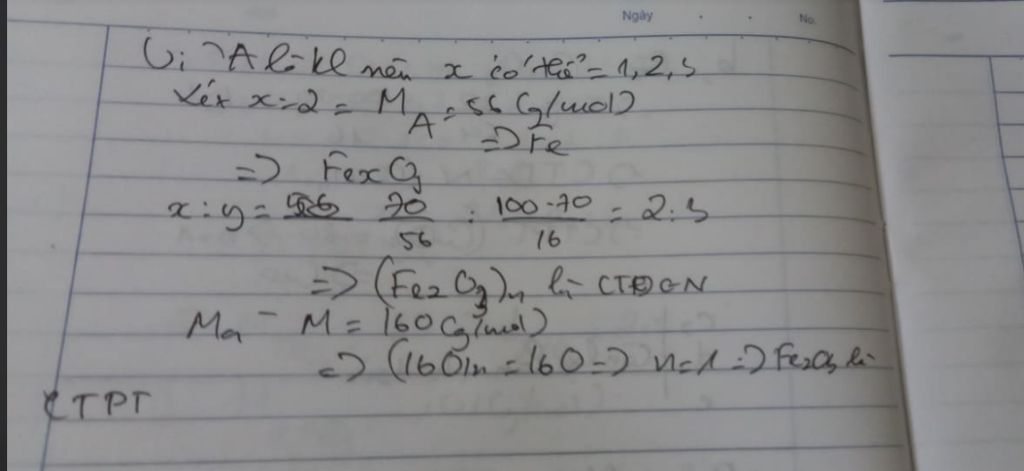 Ngày No.
Vì A là kl nên x có thể = 1, 2, 3
Xét x = 2 = M_A = 56 (g/mol)
=> Fe
=> FexOy
x : y = 70/56 : 100-70/16 = 2 : 3
=> (Fe2O3)n là CTĐGN
Mà M = 160 (g/mol)
=> (160)n = 160 => n = 1 => Fe2O3 là
CTPT